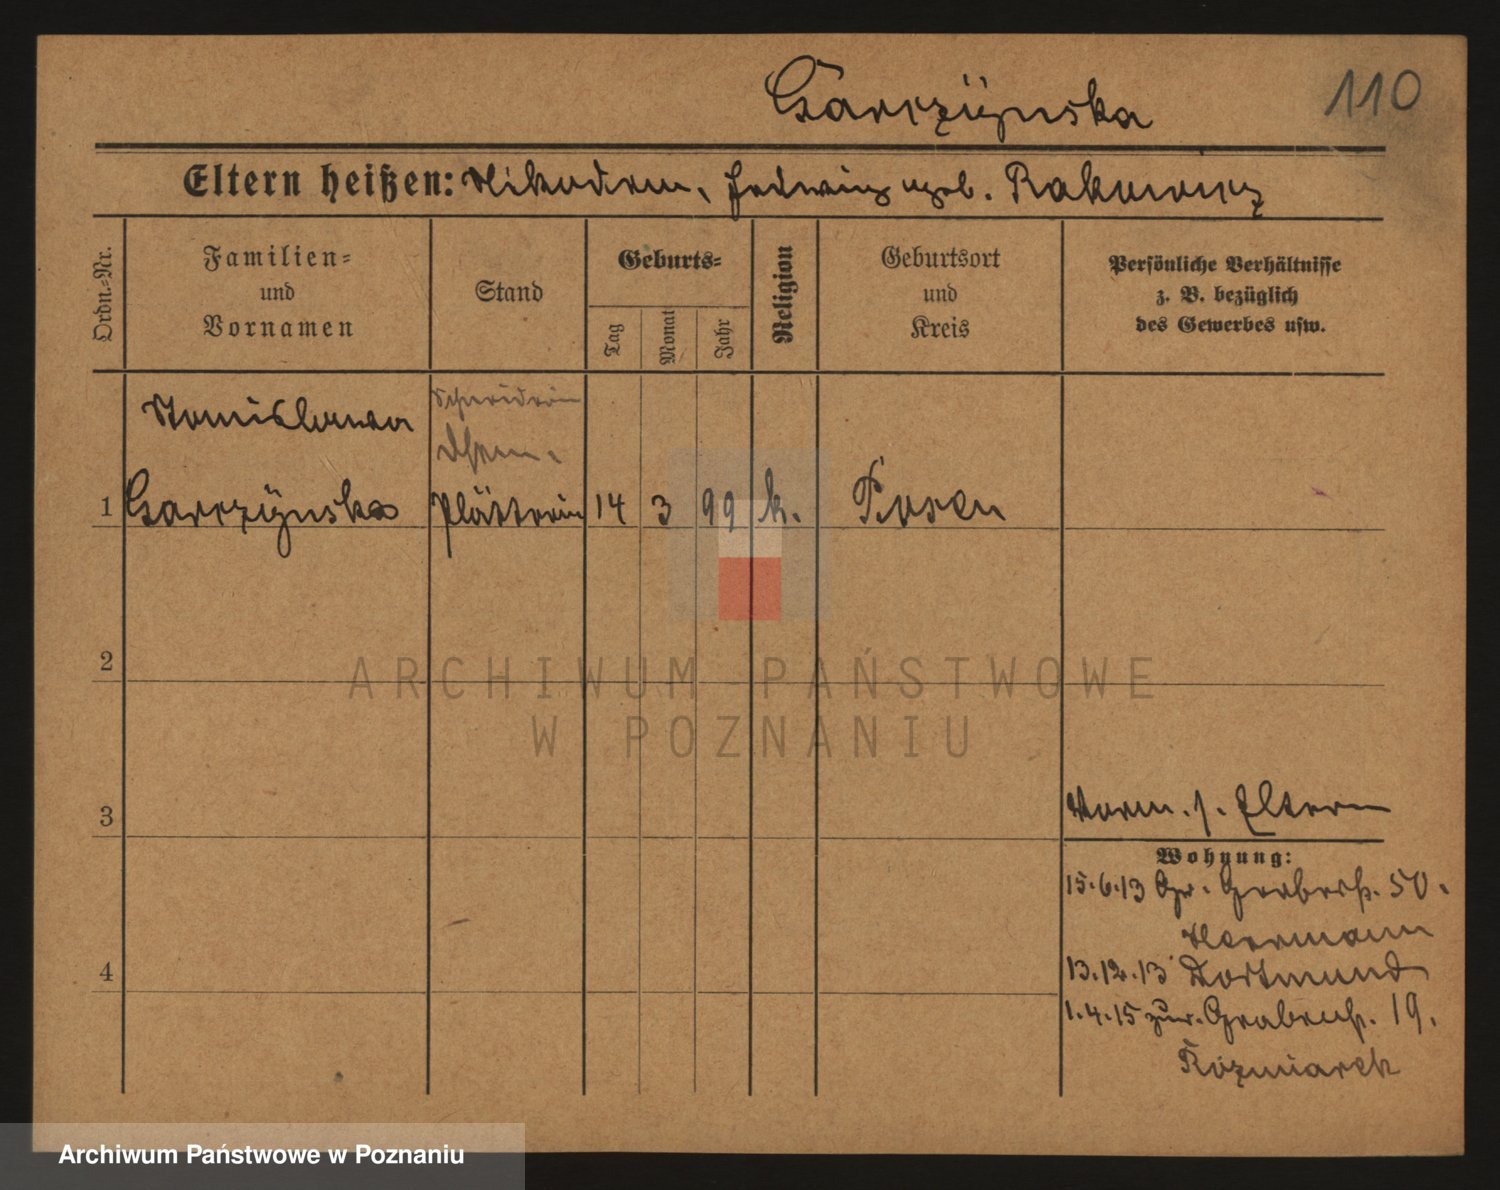 110
Garczÿnska
Eltern heißen: Nikodem, Hedwig geb. Rakowicz
Ordn.-Nr.
Familien-
und
Vornamen
Stand
Geburts-
Tag
Monat
Jahr
Religion
Geburtsort
und
Kreis
Persönliche Verhältnisse
z. B. bezüglich
des Gewerbes usw.
Stanislawa
Schneiderin
1 Garczÿnska Plätterin 14 3 99 k. Posen
2
ARCHIWUM PAŃSTWOWE
W POZNANIU
3
Vorm. s. Eltern
Wohnung:
15.6.13 Gr. Gerberstr. 50.
Herrmann
4
13.12.13 Dortmund
1.4.15 zur. Grabenstr. 19.
Kozmiarek
Archiwum Państwowe w Poznaniu